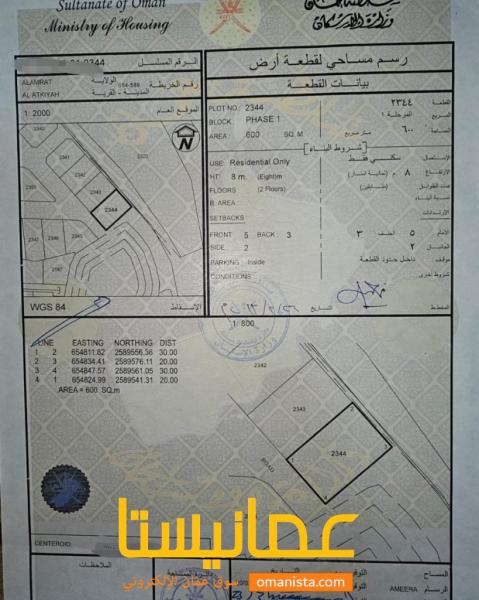 Sultanate of Oman
Ministry of Housing
وزارة الإسكان
رسم مساحي لقطعة أرض
بيانات القطعة
الرقم المسلسل
01-0344
ALAMRAT
الولاية
رقم الخريطة
AL ATKIYAH
المدينة - القرية
1: 2000
الموقع العام
PLOT NO : 2344
القطعة : ٢٣٤٤
BLOCK : PHASE 1
المربع : المرحلة ١
AREA : 600 SQ. M
٦٠٠ متر مربع
شروط البناء
USE: Residential Only
الاستعمال : سكني فقط
HT : 8 m. (Eight)m
الارتفاع : ٨ م (ثمانية امتار)
FLOORS : (2 Floors)
عدد الطوابق : (طابقين)
B. AREA
نسبة البناء
SETBACKS
الارتدادات
FRONT : 5 BACK : 3
الامام : ٥ الخلف : ٣
SIDE : 2
الجانبان : ٢
PARKING : Inside
موقف : داخل حدود القطعة
CONDITIONS :
شروط اخرى
N
2341
2342
2343
2344
2320
2347
2346
2345
WGS 84
الإسقاط
التاريخ
المخطط
1: 800
LINE EASTING NORTHING DIST
1 2 654811.82 2589556.36 30.00
2 3 654834.41 2589576.11 20.00
3 4 654847.57 2589561.05 30.00
4 1 654824.99 2589541.31 20.00
AREA = 600 SQ.m
2342
2343
2344
1
2
4
ROAD
CENTEROID:
عمانيستا
سوق عمان الإلكتروني
omanista.com
الملاحظات
التاريخ
التوقيع
المساح
AMEERA
الرسام